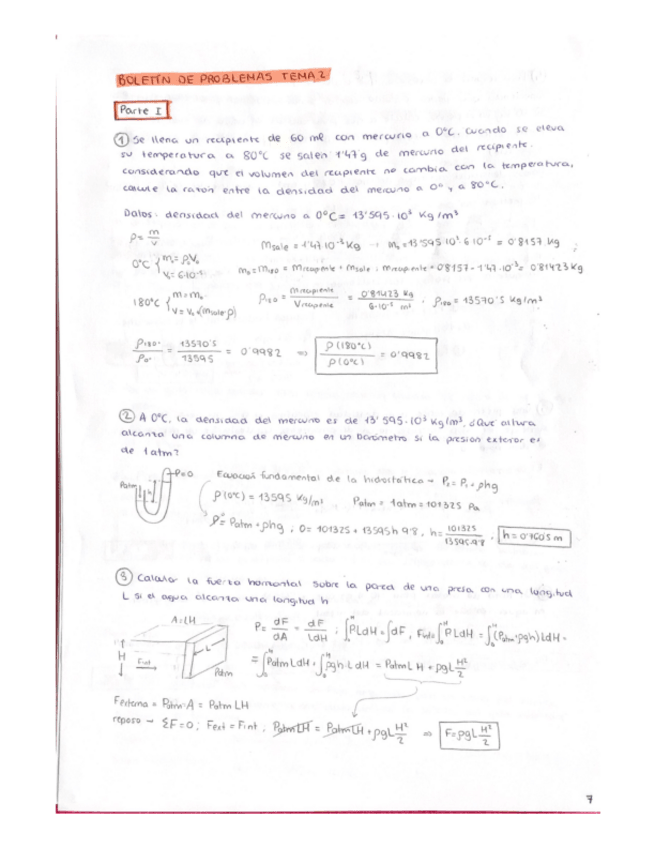 BOLETÍN DE PROBLEMAS TEMA 2
Parte I
① Se llena un recipiente de 60 ml con mercurio a 0°C. Cuando se eleva
su temperatura a 80°C se salen 1'47 g de mercurio del recipiente.
considerando que el volumen del recipiente no cambia con la temperatura,
calcule la razón entre la densidad del mercurio a 0° y a 80°C.
Datos: densidad del mercurio a 0°C = 13'595·10³ Kg/m³
ρ = m/v
m sale = 1'47·10⁻³ Kg → m₀ = 13'595·10³·6·10⁻⁵ = 0'8157 Kg ;
0°C { m₀ = ρ₀V₀
V₀ = 6·10⁻⁵
m₀ = m₁₈₀ = m recipiente + m sale ; m recipiente = 0'8157 - 1'47·10⁻³ = 0'81423 Kg
180°C { m = m₀
V = V₀ + (m sale·ρ)
ρ₁₈₀ = m recipiente / V recipiente = 0'81423 Kg / 6·10⁻⁵ m³ , ρ₁₈₀ = 13570'5 Kg/m³
ρ₁₈₀° / ρ₀° = 13570'5 / 13595 = 0'9982 ⇒ ρ(180°C) / ρ(0°C) = 0'9982
② A 0°C, la densidad del mercurio es de 13'595·10³ Kg/m³. ¿Que altura
alcanza una columna de mercurio en un barómetro si la presión exterior es
de 1 atm?
P=0
Patm
h
Ecuación fundamental de la hidrostática → P₂ = P₁ + ρhg
ρ(0°C) = 13595 Kg/m³ Patm = 1atm = 101325 Pa
P = Patm + ρhg ; 0 = 101325 + 13595 h 9'8 , h = 101325 / 13595·9'8 , h = 0'7605 m
③ Calcular la fuerza horizontal sobre la pared de una presa con una longitud
L si el agua alcanza una longitud h
A=LH
H
Fint
L
Patm
P = dF/dA = dF/LdH ; ∫₀ᴴ PLdH = ∫dF , Fint = ∫₀ᴴ PLdH = ∫₀ᴴ (Patm+ρgh)LdH =
= ∫₀ᴴ Patm LdH + ∫₀ᴴ ρgh·LdH = Patm L H + ρgL H²/2
Fexterna = Patm·A = Patm LH
reposo → ΣF=0 ; Fext = Fint , Patm LH = Patm LH + ρgL H²/2 ⇒ F=ρgL H²/2
7